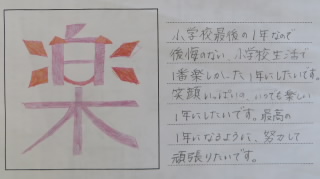 楽
小学校最後の1年なので
後悔のない、小学校生活で
1番楽しかった1年にしたいです。
笑顔いっぱいの、いつも楽しい
1年にしたいです。最高の
1年になるように、努力して
頑張りたいです。